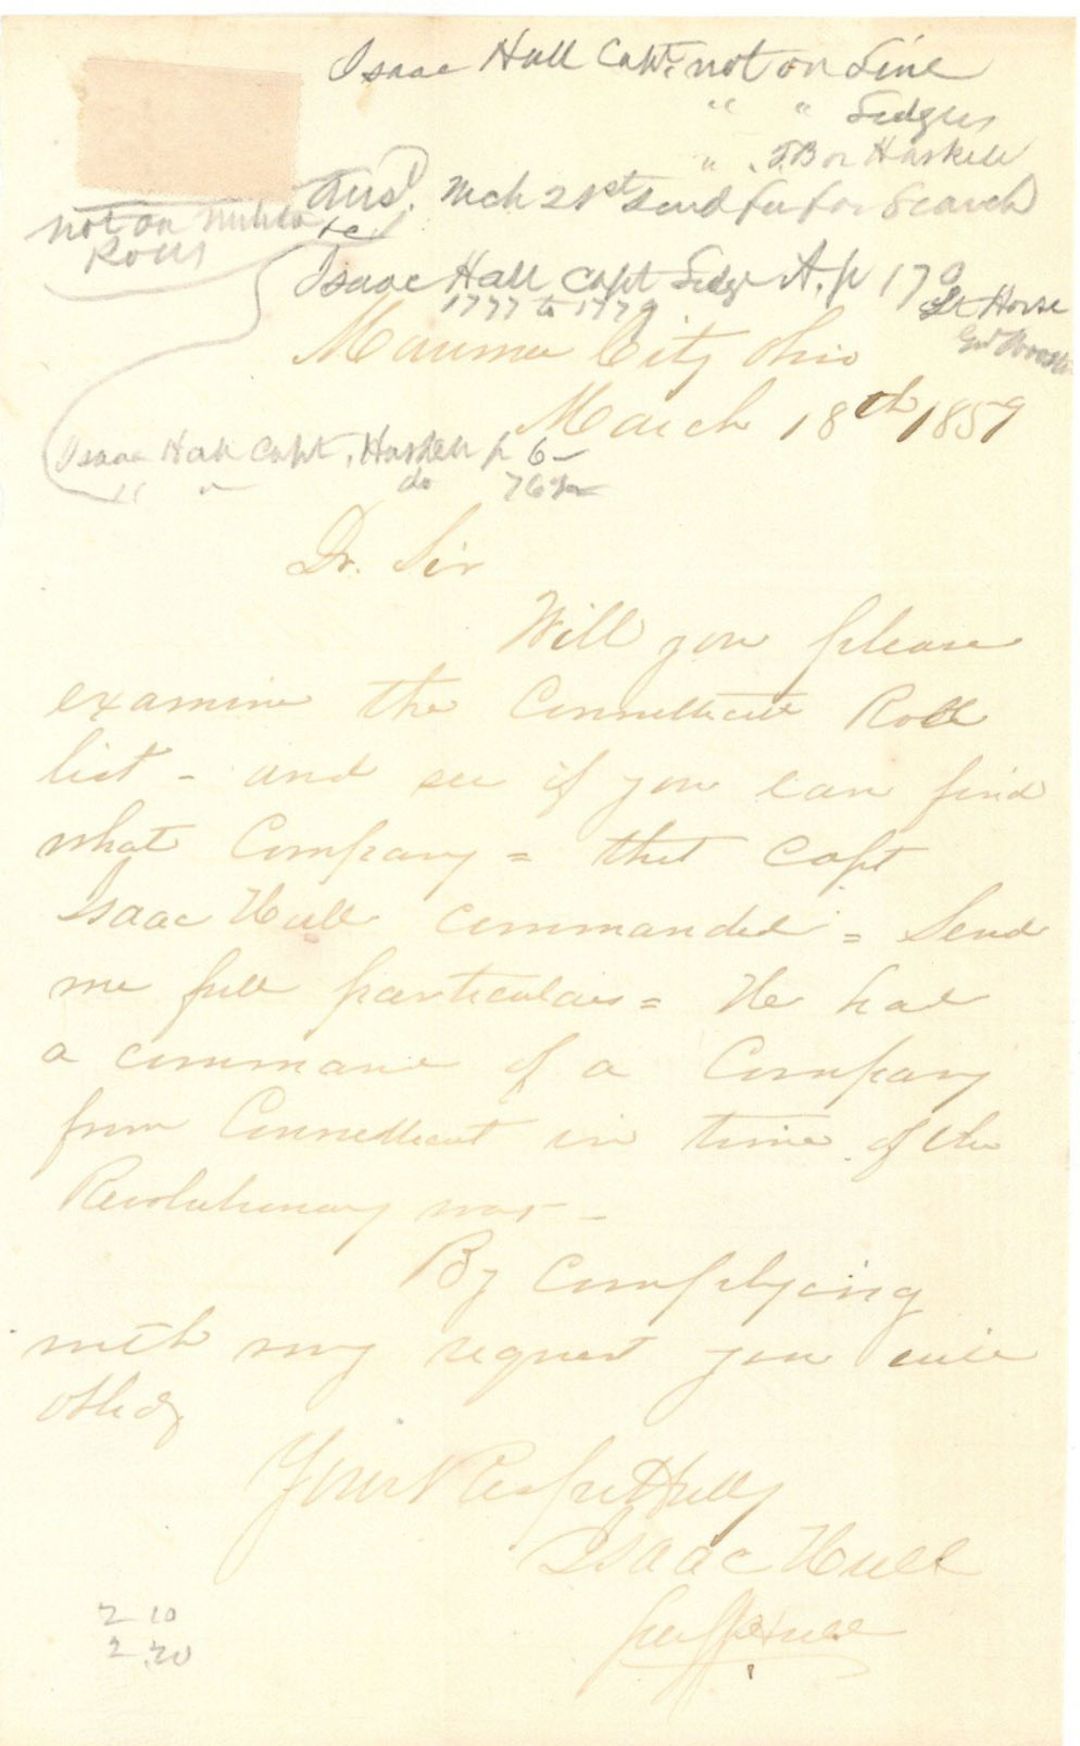 Isaac Hull Capt. not on Line
" " Ledgers
" " J.B or Haskell
Ansd. Mch 21st send fee for search
not on Militia
Rolls
Isaac Hull Capt Ledgr A. p 170
1777 to 1779
Lt Horse
Maumee City Ohio
March 18th 1859
Isaac Hull Capt. Haskell p 6
" " do 76
Dr. Sir
Will you please
examine the Connetticutt Roll
list - and see if you can find
what Company = that Capt
Isaac Hull commanded = Send
me full particulars = He had
a command of a Company
from Connetticut in time of the
Revolutionary war -
By Complying
with my request you will
oblidg
Yours Respettfully
Isaac Hull
2 10
2.20